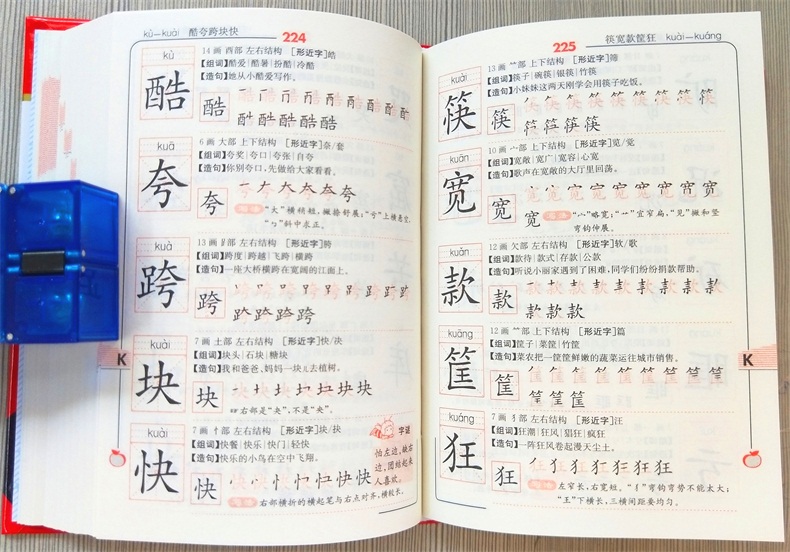 kù—kuài 酷夸跨块快 224
kù
酷
14画 酉部 左右结构 [形近字]皓
【组词】酷爱|酷暑|扮酷|冷酷
【造句】她从小酷爱写作。
酷
kuā
夸
6画 大部 上下结构 [形近字]奈/套
【组词】夸奖|夸口|夸张|自夸
【造句】你别夸口,先做给大家看看。
夸
“大”横稍短,撇捺舒展;“亏”上横悬空,
“ㄅ”斜中求正。
kuà
跨
13画 ⻊部 左右结构 [形近字]胯
【组词】跨度|跨越|飞跨|横跨
【造句】一座大桥横跨在宽阔的江面上。
跨
kuài
块
7画 土部 左右结构 [形近字]快/决
【组词】块头|石块|糖块
【造句】我和爸爸、妈妈一块儿去植树。
块
右部是“夬”,不是“央”。
kuài
快
7画 忄部 左右结构 [形近字]块/抉
【组词】快餐|快乐|快门|轻快
【造句】快乐的小鸟在空中飞翔。
快
右部横折的横起笔与右点对齐,横较长。
字谜
怕左边,缺右
边,团结起来
人喜欢。
K
225 筷宽款筐狂 kuài—kuáng
kuài
筷
13画 ⺮部 上下结构 [形近字]筛
【组词】筷子|碗筷|银筷|竹筷
【造句】小妹妹这两天刚学会用筷子吃饭。
筷
kuān
宽
10画 宀部 上下结构 [形近字]览/觉
【组词】宽敞|宽广|宽容|心宽
【造句】歌声在宽敞的大厅里回荡。
宽
“宀”略宽;“艹”宜窄扁,“见”撇和竖
弯钩伸展。
kuǎn
款
12画 欠部 左右结构 [形近字]软/歌
【组词】款待|款式|存款|公款
【造句】听说小丽家遇到了困难,同学们纷纷捐款帮助。
款
kuāng
筐
12画 ⺮部 上下结构 [形近字]篇
【组词】筐子|菜筐|竹筐
【造句】菜农把一筐筐鲜嫩的蔬菜运往城市销售。
筐
kuáng
狂
7画 犭部 左右结构 [形近字]汪
【组词】狂潮|狂风|猖狂|疯狂
【造句】一阵狂风卷起漫天尘土。
狂
左窄长,右宽短。“犭”弯钩弯势不能太大;
“王”下横长,三横间距要均匀。
K